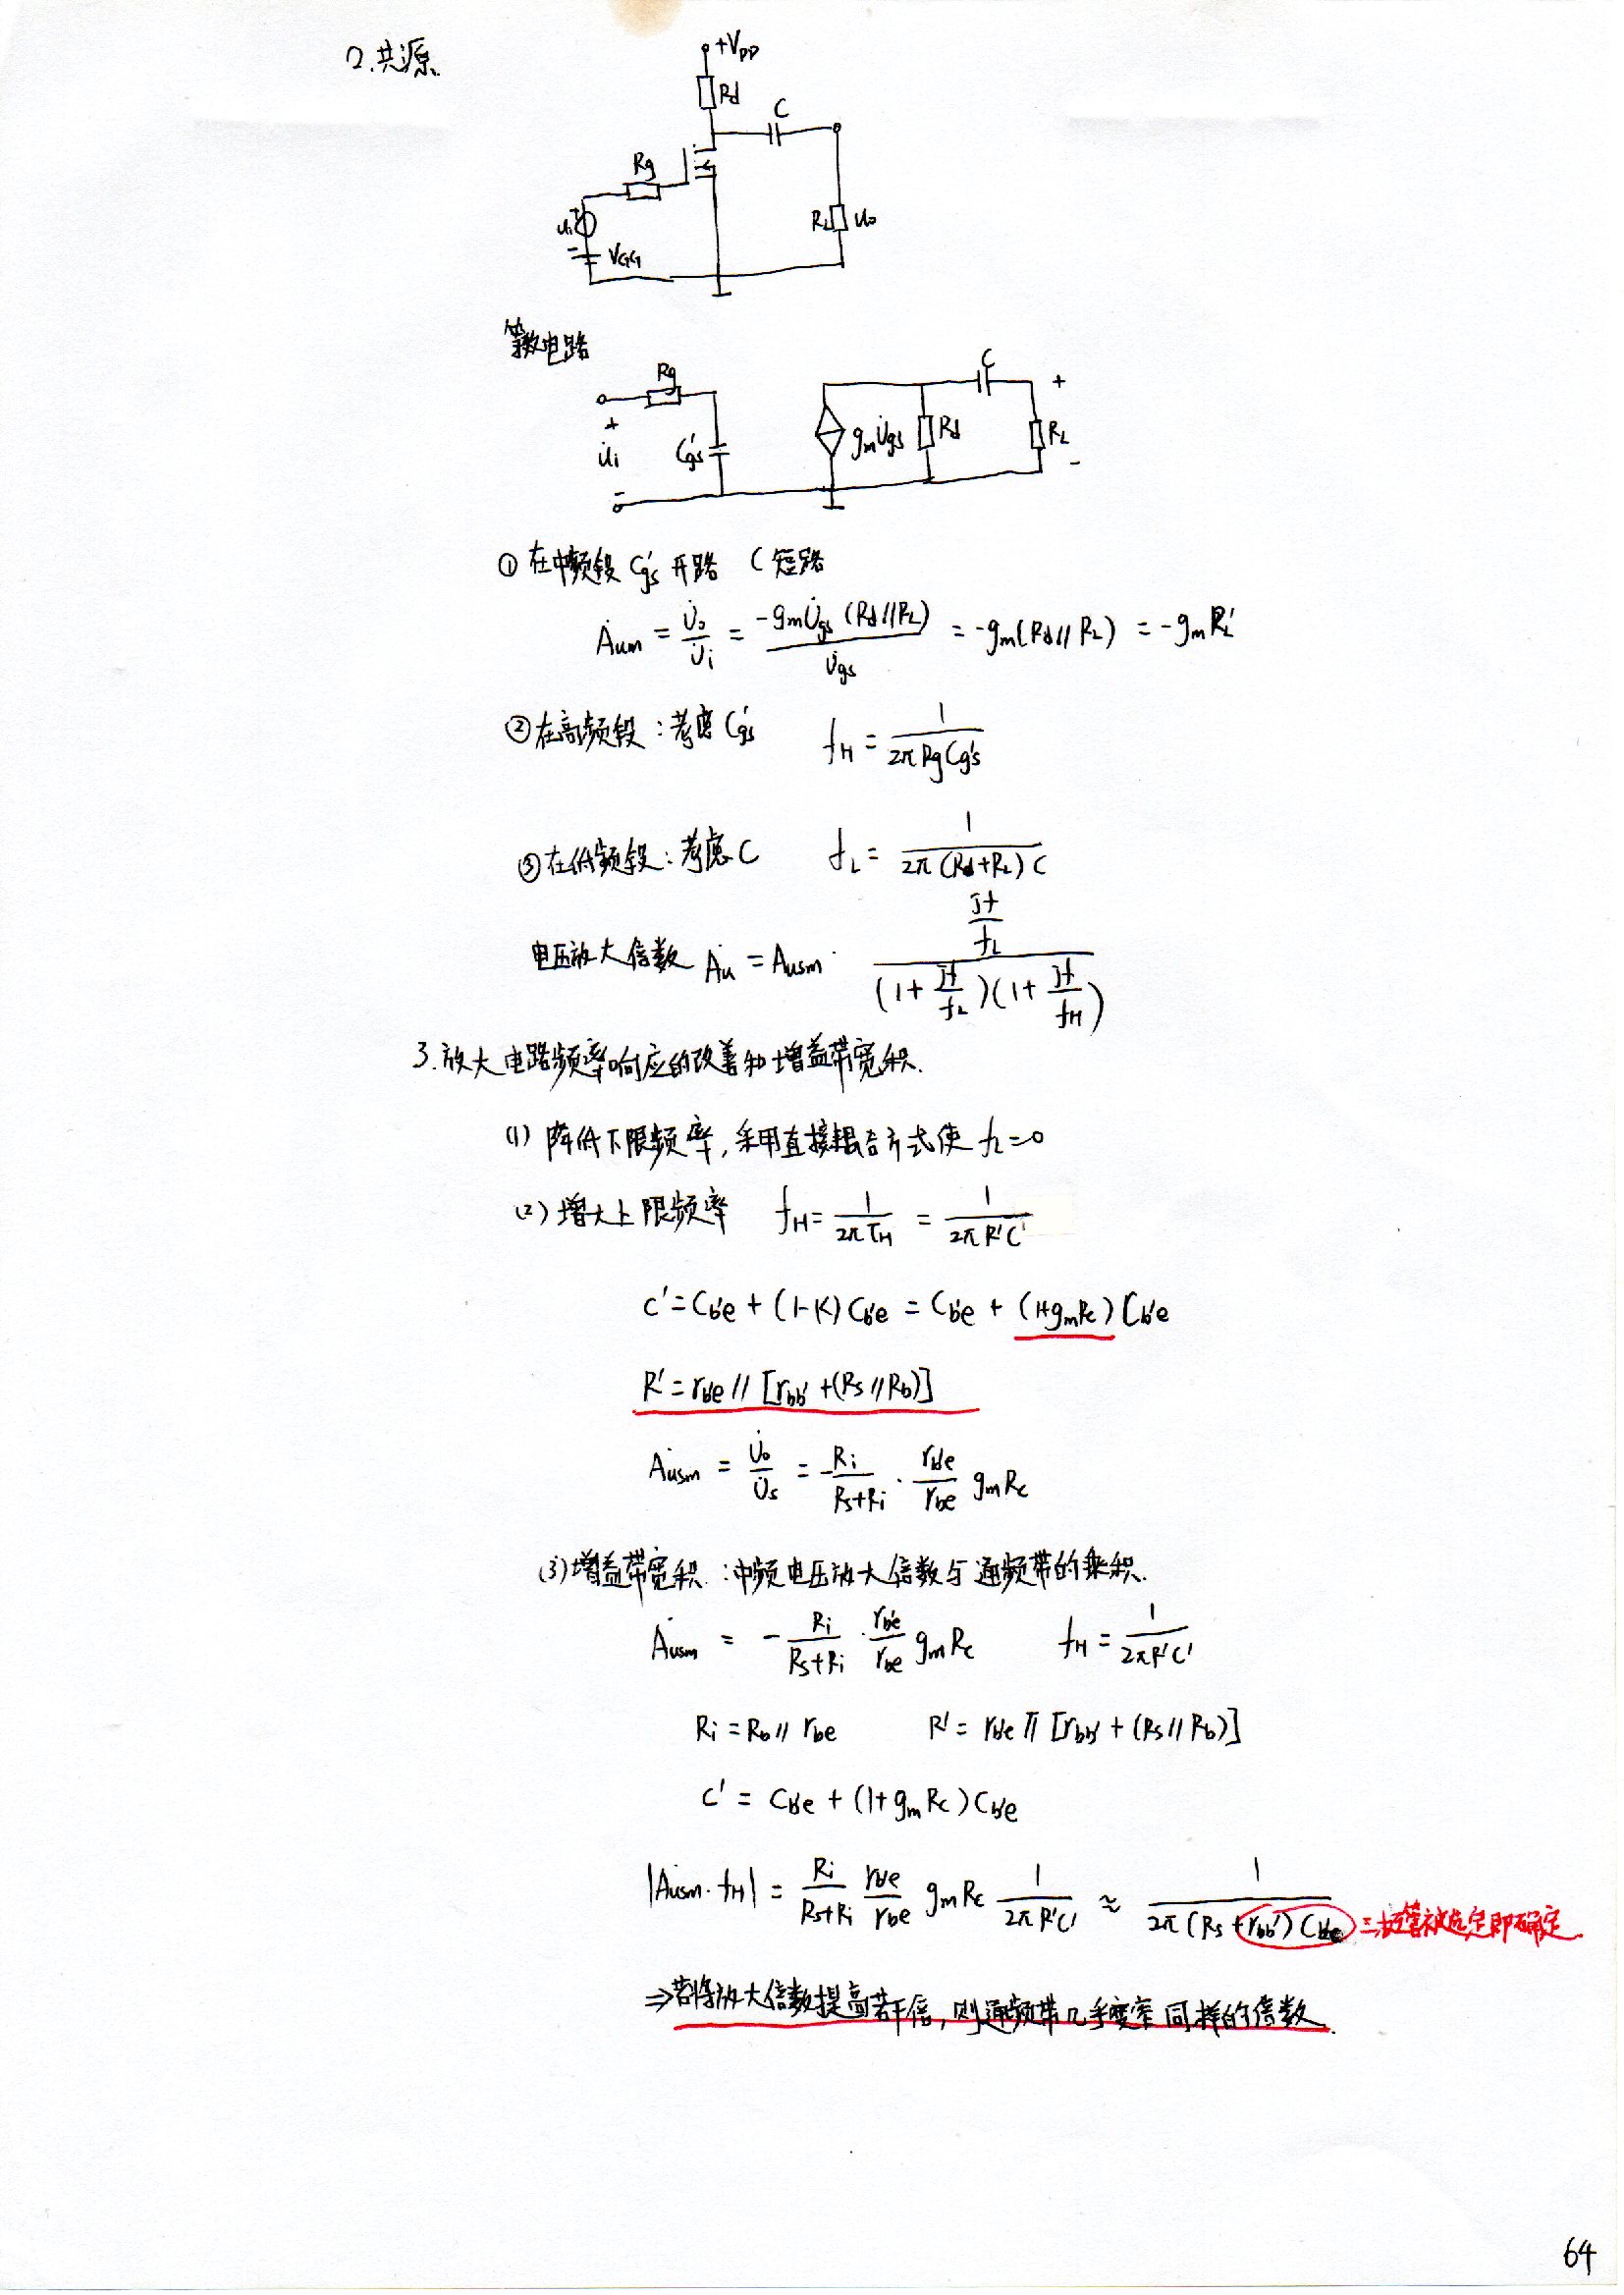 2.共源.
+VDD
Rd
C
Rg
ui
VGG
RL uo
等效电路
Rg
C
+
+
U̇i
C'gs
gmU̇gs
Rd
RL
-
-
① 在中频段 C'gs 开路 C 短路
Ȧum = U̇o/U̇i = -gmU̇gs (Rd//RL)/U̇gs = -gm(Rd//RL) = -gmR'L
② 在高频段:考虑 C'gs fH = 1/(2πRgC'gs)
③ 在低频段:考虑C fL = 1/(2π(Rd+RL)C)
电压放大倍数 Ȧu = Ausm · (jf/fL)/((1+jf/fL)(1+jf/fH))
3.放大电路频率响应的改善和增益带宽积.
(1) 降低下限频率,采用直接耦合方式使 fL=0
(2) 增大上限频率 fH = 1/(2πτH) = 1/(2πR'C')
C' = Cb'e + (1-K)Cb'e = Cb'e + (1+gmRc)Cb'e
R' = rb'e // [rbb' + (Rs//Rb)]
Ȧusm = U̇o/U̇s = -Ri/(Rs+Ri) · rb'e/rbe gmRc
(3) 增益带宽积:中频电压放大倍数与通频带的乘积.
Ȧusm = -Ri/(Rs+Ri) · rb'e/rbe gmRc fH = 1/(2πR'C')
Ri = Rb // rbe R' = rb'e // [rbb' + (Rs//Rb)]
C' = Cb'e + (1+gmRc)Cb'e
|Ȧusm·fH| = Ri/(Rs+Ri) rb'e/rbe gmRc 1/(2πR'C') ≈ 1/(2π(Rs+rbb')Cb'c) 三极管被选定即确定.
⇒若将放大倍数提高若干倍,则通频带几乎变窄同样的倍数.
64